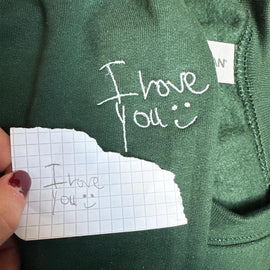 I love
You :)
AN
I love
You :)